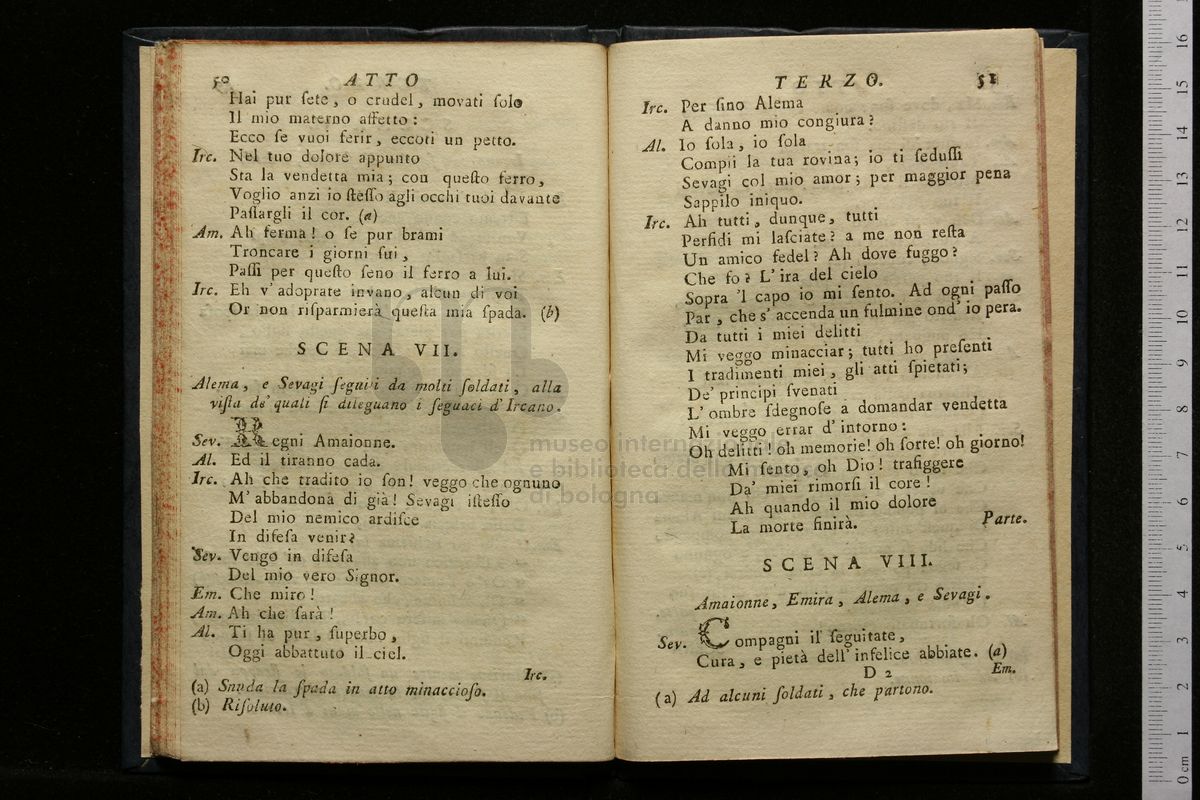 50 ATTO
Hai pur ſete, o crudel, movati ſolo
Il mio materno affetto:
Ecco ſe vuoi ferir, eccoti un petto.
Irc. Nel tuo dolore appunto
Sta la vendetta mia; con queſto ferro,
Voglio anzi io ſteſſo agli occhi tuoi davante
Paſſargli il cor. (a)
Am. Ah ferma! o ſe pur brami
Troncare i giorni ſui,
Paſſi per queſto ſeno il ferro a lui.
Irc. Eh v'adoprate invano, alcun di voi
Or non riſparmierà queſta mia ſpada. (b)
SCENA VII.
Alema, e Sevagi ſeguiti da molti ſoldati, alla
viſta de' quali ſi dileguano i ſeguaci d'Ircano.
Sev. Regni Amaionne.
Al. Ed il tiranno cada.
Irc. Ah che tradito io ſon! veggo che ognuno
M'abbandona di già! Sevagi iſteſſo
Del mio nemico ardiſce
In difeſa venir?
Sev. Vengo in difeſa
Del mio vero Signor.
Em. Che miro!
Am. Ah che ſarà!
Al. Ti ha pur, ſuperbo,
Oggi abbattuto il ciel.
Irc.
(a) Snuda la ſpada in atto minaccioſo.
(b) Riſoluto.
TERZO. 51
Irc. Per ſino Alema
A danno mio congiura?
Al. Io ſola, io ſola
Compii la tua rovina; io ti ſeduſſi
Sevagi col mio amor; per maggior pena
Sappilo iniquo.
Irc. Ah tutti, dunque, tutti
Perfidi mi laſciate? a me non reſta
Un amico fedel? Ah dove fuggo?
Che fo? L'ira del cielo
Sopra 'l capo io mi ſento. Ad ogni paſſo
Par, che s'accenda un fulmine ond'io pera.
Da tutti i miei delitti
Mi veggo minacciar; tutti ho preſenti
I tradimenti miei, gli atti ſpietati;
De' principi ſvenati
L'ombre ſdegnoſe a domandar vendetta
Mi veggo errar d'intorno:
Oh delitti! oh memorie! oh ſorte! oh giorno!
Mi ſento, oh Dio! trafiggere
Da' miei rimorſi il core!
Ah quando il mio dolore
La morte finirà. Parte.
SCENA VIII.
Amaionne, Emira, Alema, e Sevagi.
Sev. Compagni il ſeguitate,
Cura, e pietà dell'infelice abbiate. (a)
D 2 Em.
(a) Ad alcuni ſoldati, che partono.
museo internazionale
e biblioteca della musica
di bologna
0 cm 1 2 3 4 5 6 7 8 9 10 11 12 13 14 15 16